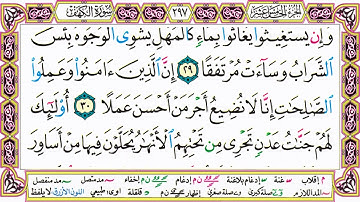 الجزء الخامس عشر ٢٩٧ سورة الكهف
وَإِن يَسْتَغِيثُوا۟ يُغَاثُوا۟ بِمَآءٍ كَٱلْمُهْلِ يَشْوِى ٱلْوُجُوهَ بِئْسَ
ٱلشَّرَابُ وَسَآءَتْ مُرْتَفَقًا ٢٩ إِنَّ ٱلَّذِينَ ءَامَنُوا۟ وَعَمِلُوا۟
ٱلصَّٰلِحَٰتِ إِنَّا لَا نُضِيعُ أَجْرَ مَنْ أَحْسَنَ عَمَلًا ٣٠ أُو۟لَٰٓئِكَ
لَهُمْ جَنَّٰتُ عَدْنٍ تَجْرِى مِن تَحْتِهِمُ ٱلْأَنْهَٰرُ يُحَلَّوْنَ فِيهَا مِنْ أَسَاوِرَ